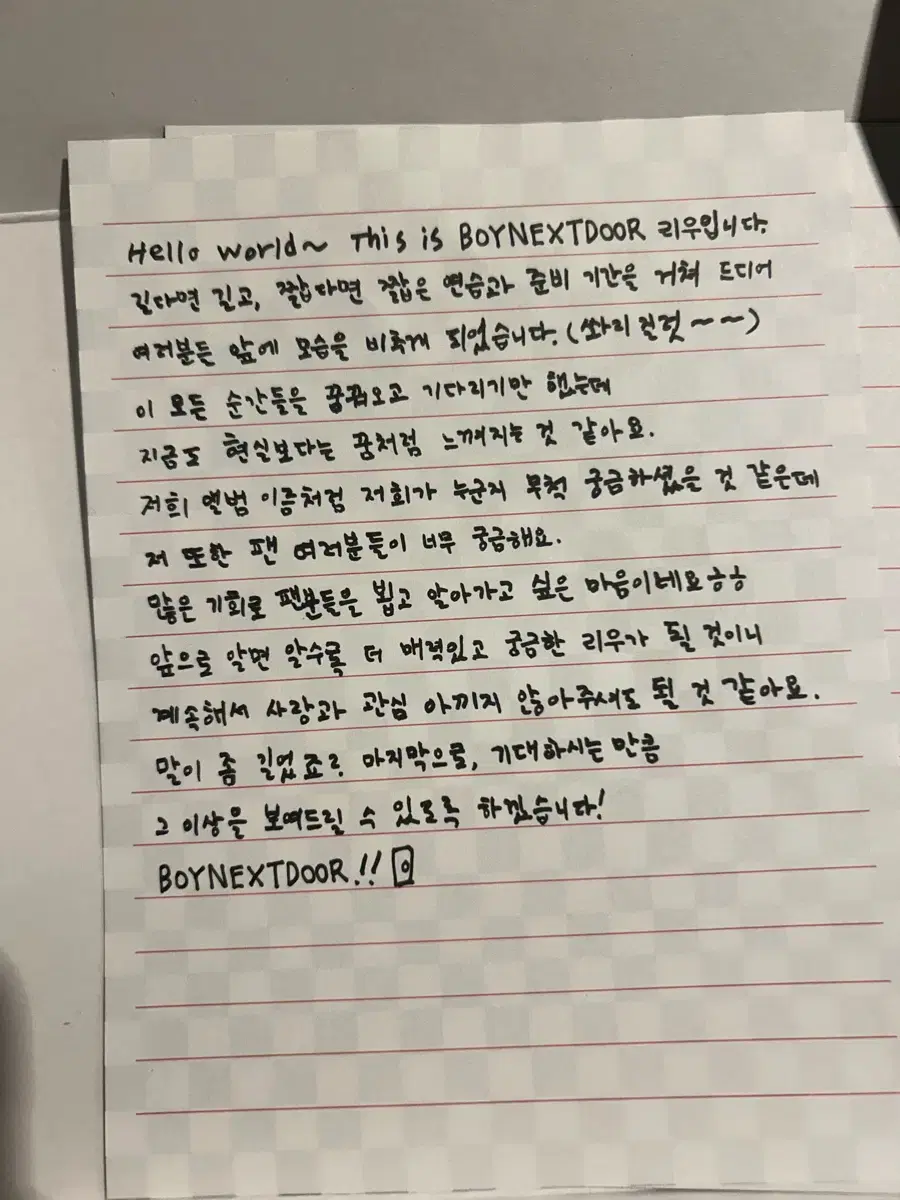 Hello world~ This is BOYNEXTDOOR 리우입니다.
길다면 길고, 짧다면 짧은 연습과 준비 기간을 거쳐 드디어
여러분들 앞에 모습을 비추게 되었습니다. (쏴리 질럿~~)
이 모든 순간들을 꿈꿔오고 기다리기만 했는데
지금도 현실보다는 꿈처럼 느껴지는 것 같아요.
저희 앨범 이름처럼 저희가 누군지 무척 궁금하셨을 것 같은데
저 또한 팬 여러분들이 너무 궁금해요.
많은 기회로 팬분들을 뵙고 알아가고 싶은 마음이네요ㅎㅎ
앞으로 알면 알수록 더 매력있고 궁금한 리우가 될 것이니
계속해서 사랑과 관심 아끼지 않아주셔도 될 것 같아요.
말이 좀 길었죠? 마지막으로, 기대하시는 만큼
그 이상을 보여드릴 수 있도록 하겠습니다!
BOYNEXTDOOR!!